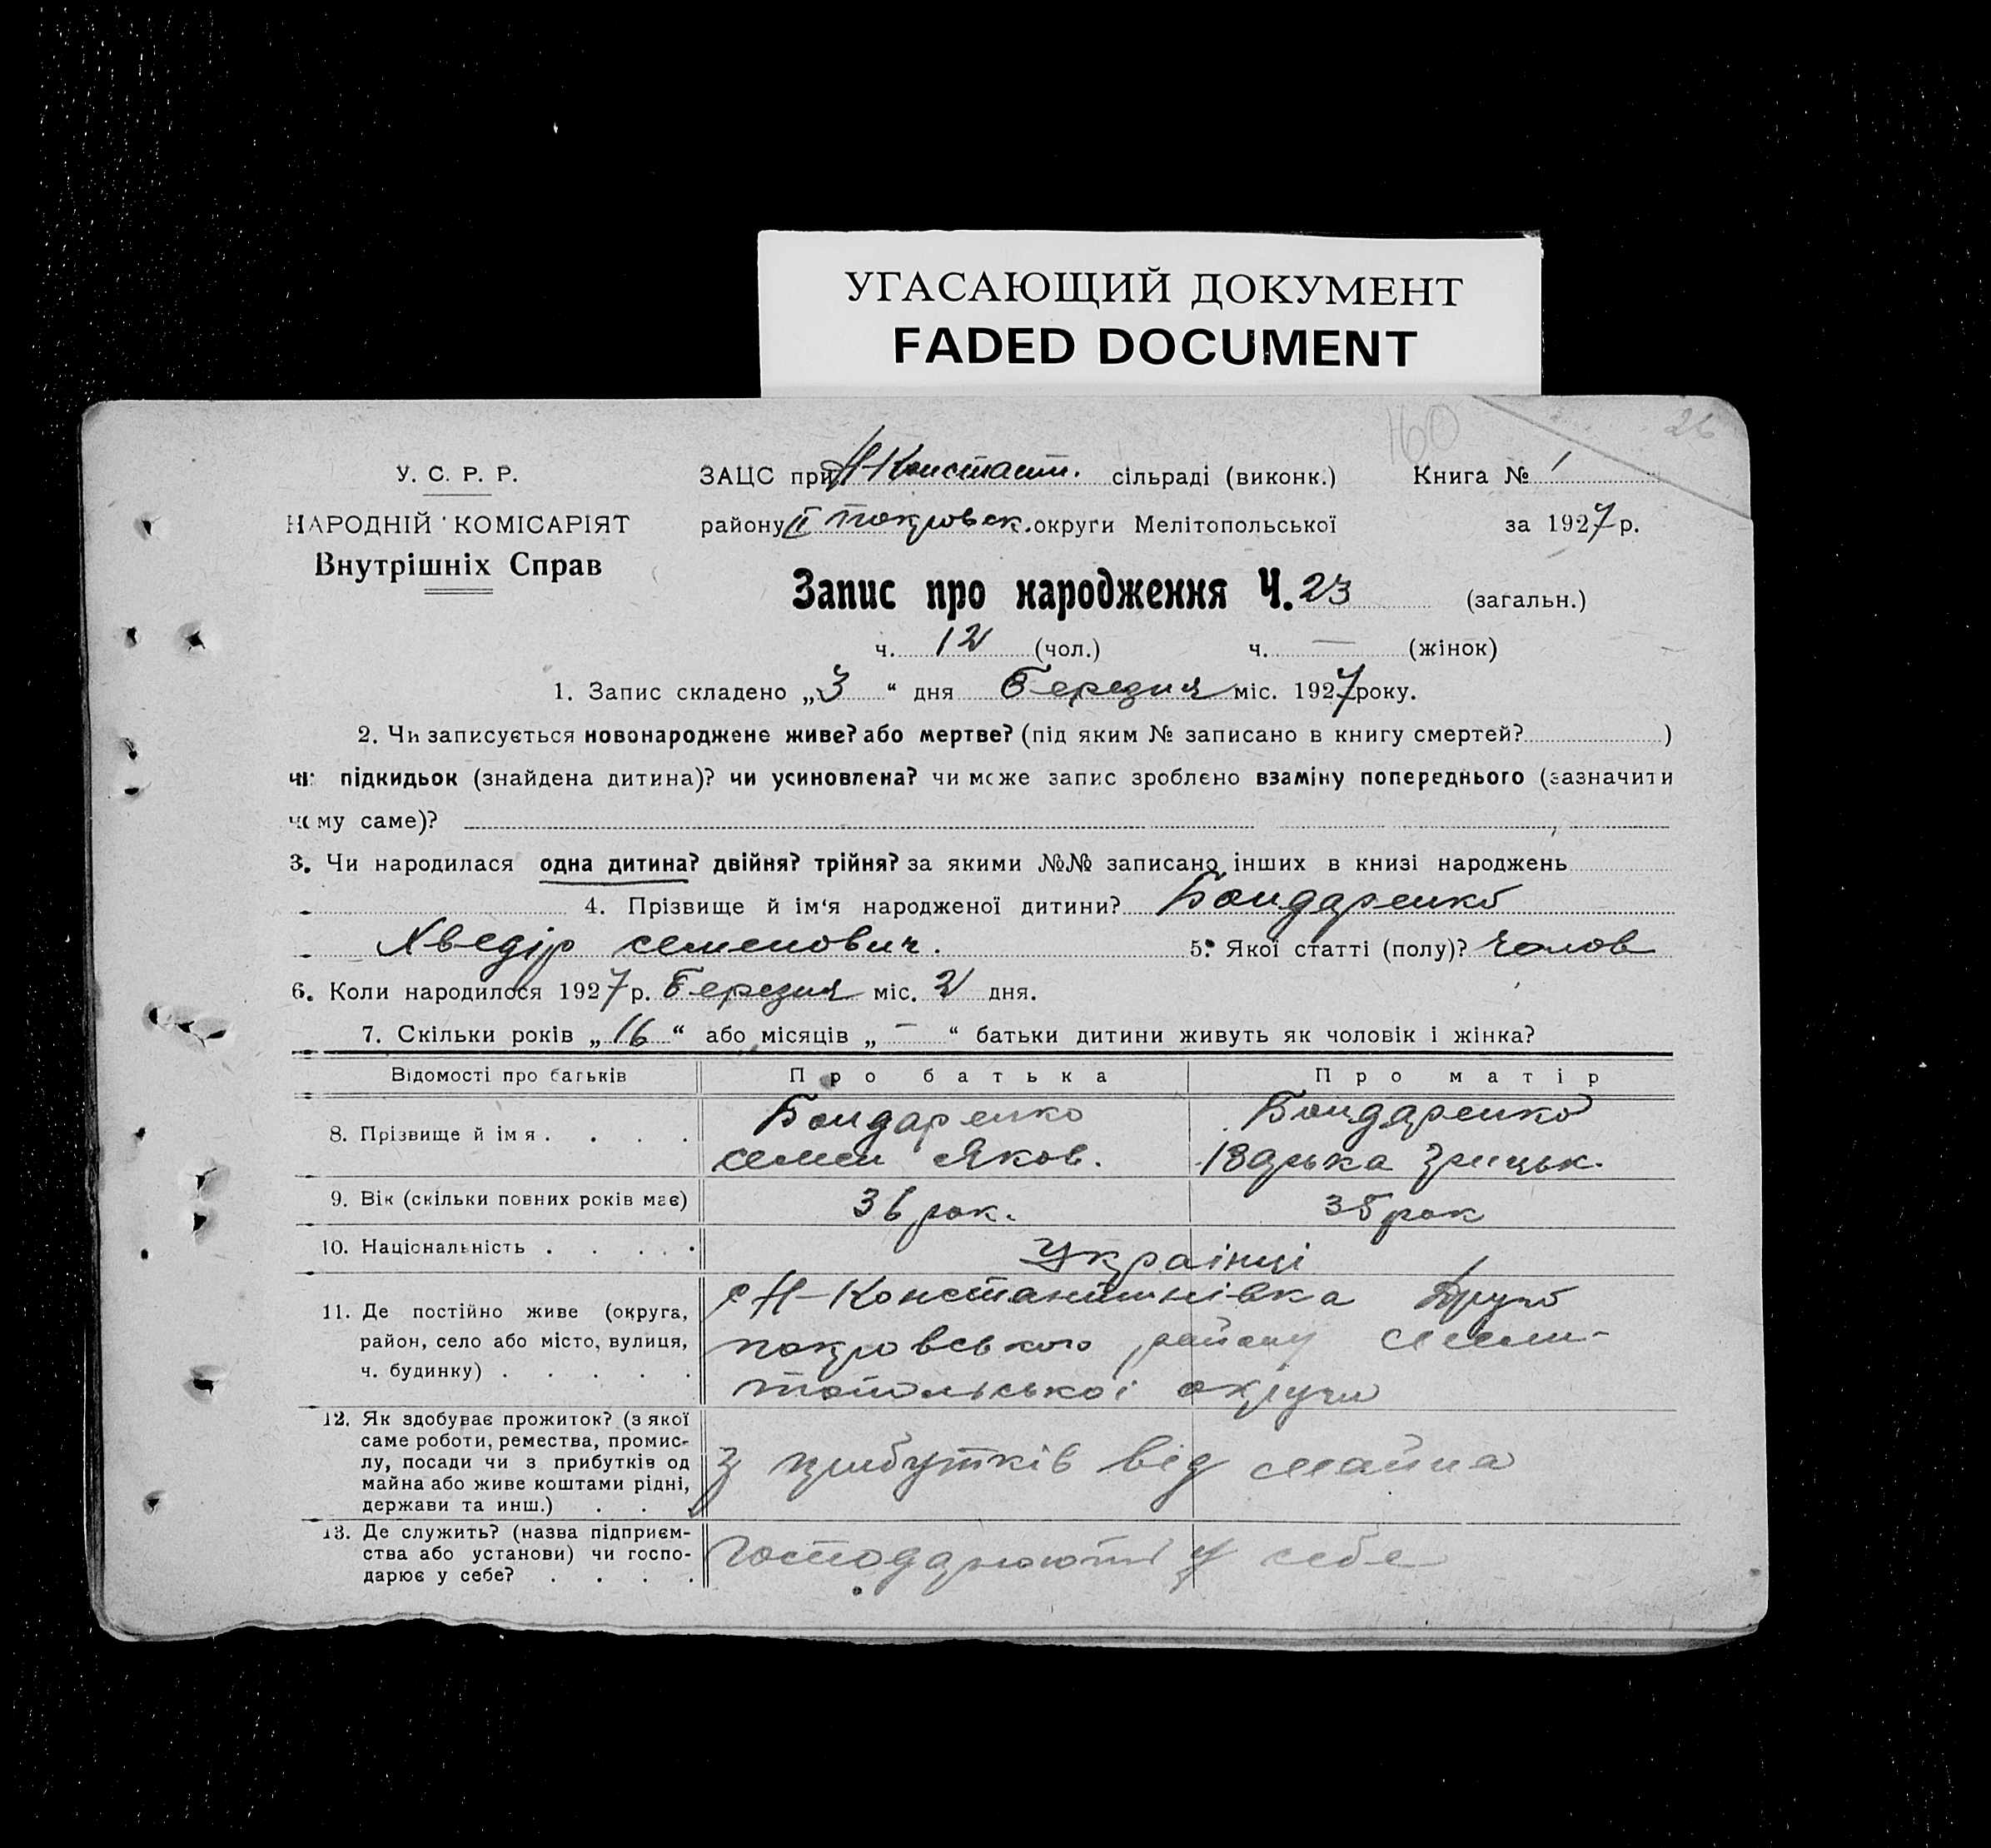 УГАСАЮЩИЙ ДОКУМЕНТ
FADED DOCUMENT
160
26
У. С. Р. Р.
НАРОДНІЙ КОМІСАРІЯТ
Внутрішніх Справ
ЗАЦС при Н-Констант. сільраді (виконк.) Книга № 1
району ІІ Покровск. округи Мелітопольської за 1927 р.
Запис про народження Ч. 23 (загальн.)
ч. 12 (чол.) ч. — (жінок)
1. Запис складено „3“ дня березня міс. 1927 року.
2. Чи записується новонароджене живе? або мертве? (під яким № записано в книгу смертей? )
чи підкидьок (знайдена дитина)? чи усиновлена? чи може запис зроблено взаміну попереднього (зазначити
чому саме)?
3. Чи народилася одна дитина? двійня? трійня? за якими №№ записано інших в книзі народжень
4. Прізвище й ім'я народженої дитини? Бондаренко
Хведір семенович. 5. Якої статті (полу)? чолов
6. Коли народилося 1927 р. березня міс. 2 дня.
7. Скільки років „16“ або місяців „—“ батьки дитини живуть як чоловік і жінка?
Відомості про батьків Про батька Про матір
8. Прізвище й імя . . . . Бондаренко Бондаренко
семен Яков.
9. Вік (скільки повних років має) 36 рок. 35 рок
10. Національність . . . . . Українці
11. Де постійно живе (округа, район, село або місто, вулиця, ч. будинку) . . . . . с Н-Константинівка Друго
покровського району Мели-
топольської округи
12. Як здобуває прожиток? (з якої саме роботи, ремества, промислу, посади чи з прибутків од майна або живе коштами рідні, держави та инш.) . . . з прибутків від майна
13. Де служить? (назва підприємства або установи) чи господарює у себе? . . . . господарюють у себе